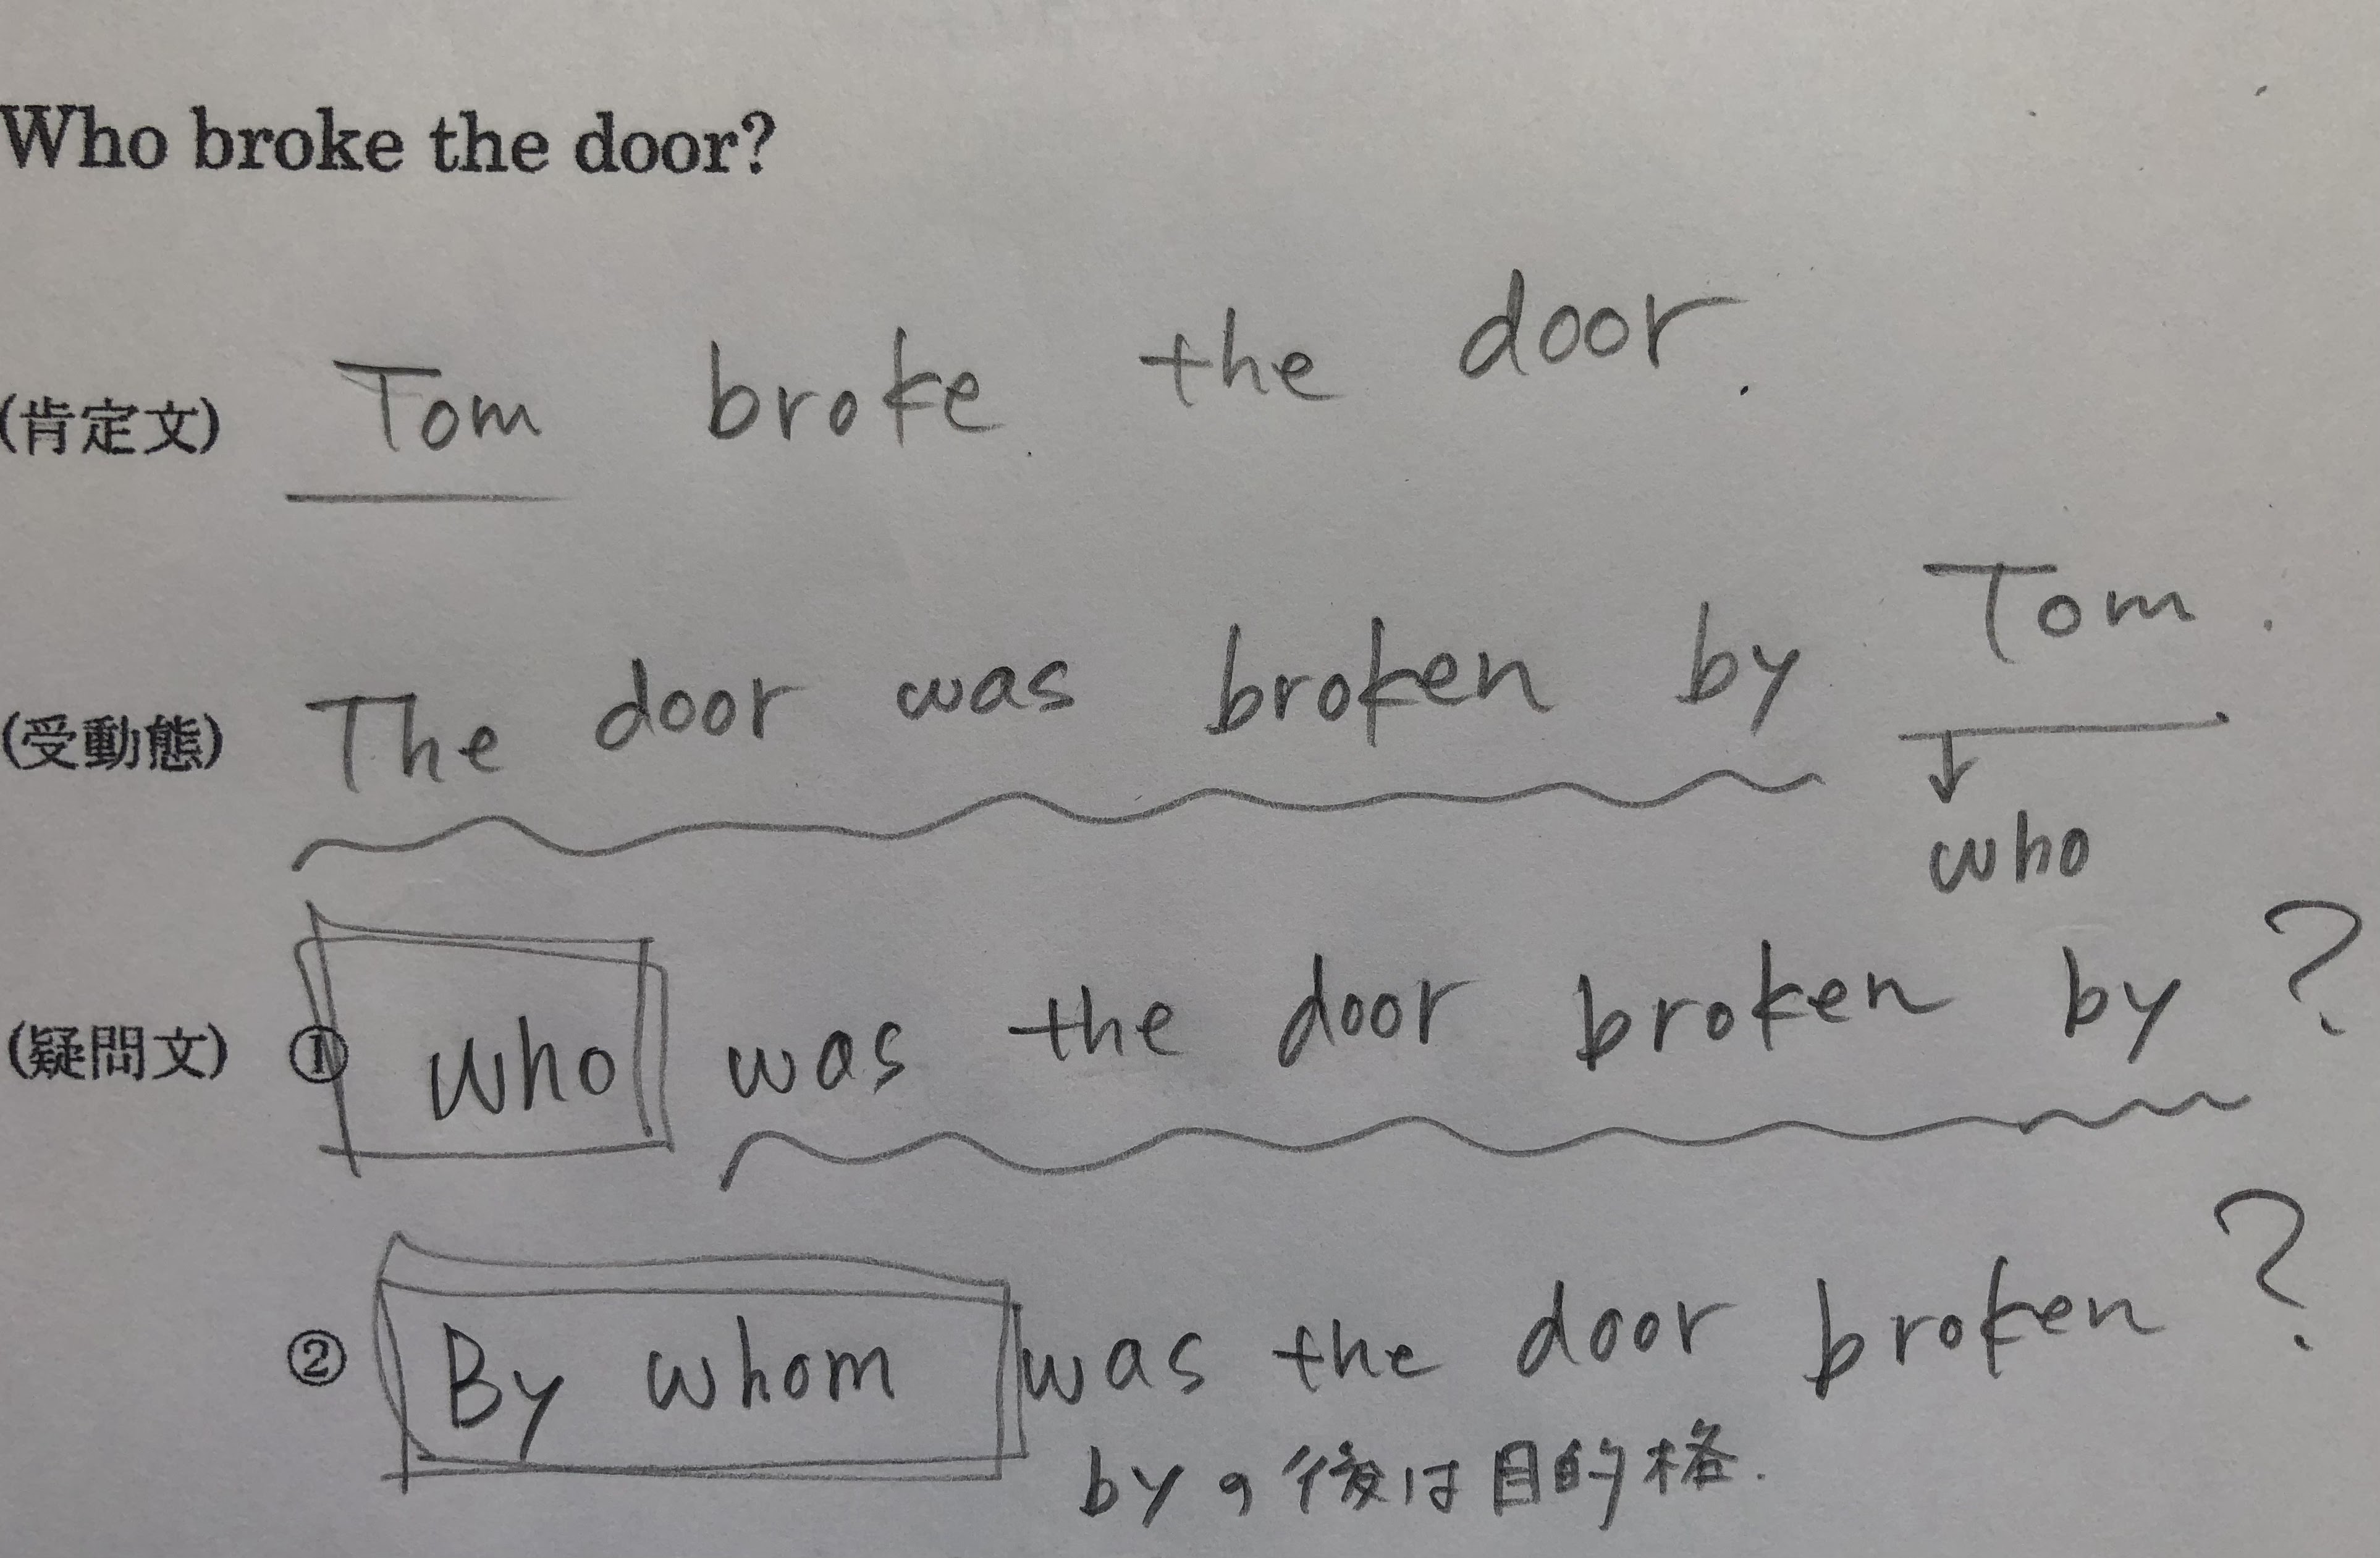 Who broke the door?
(肯定文) Tom broke the door.
(受動態) The door was broken by Tom.
who
(疑問文) ① who was the door broken by?
② By whom was the door broken?
byの後は目的格.